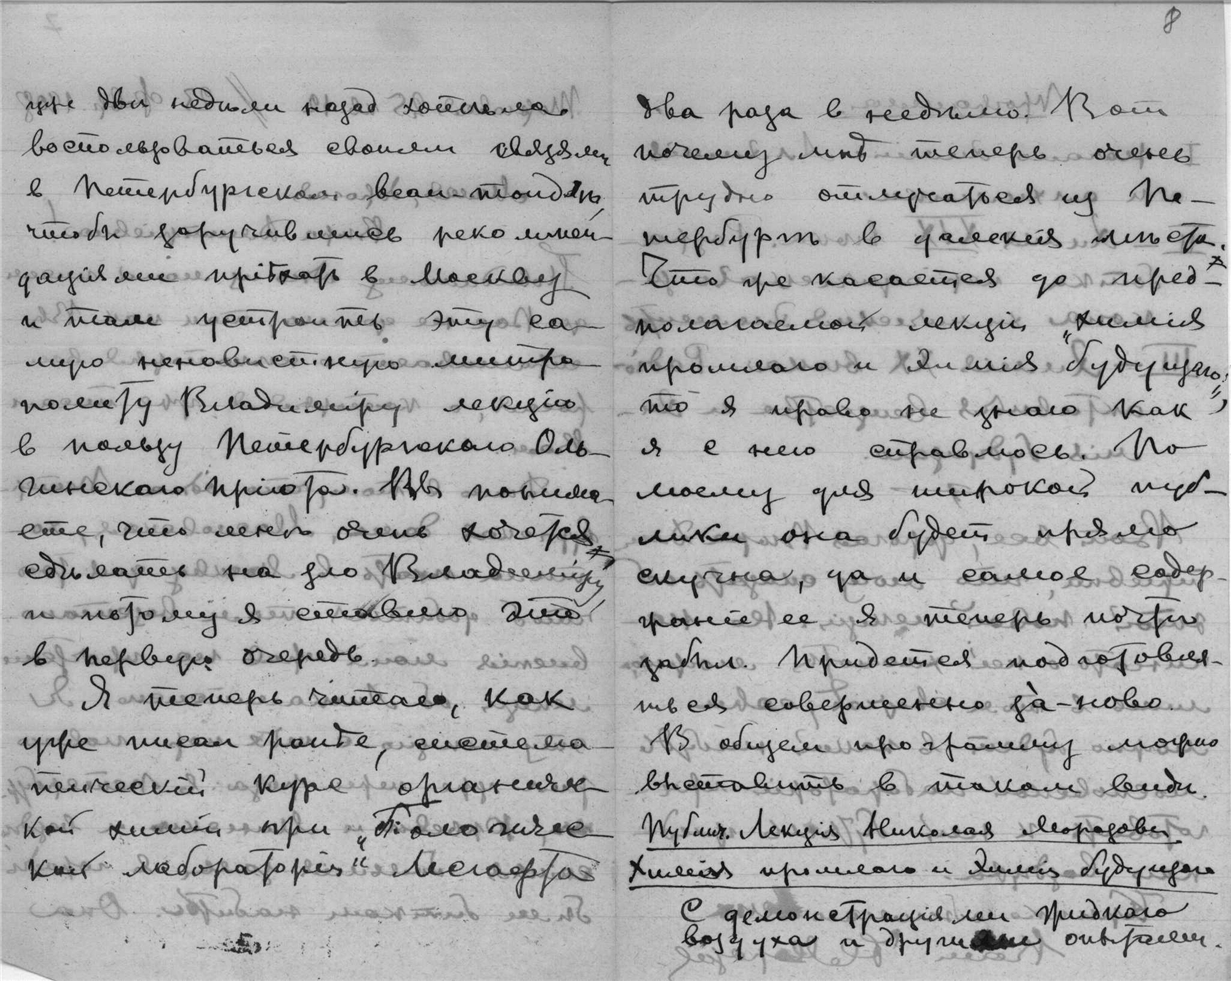 уже двѣ недѣли назад хотѣла
воспользоваться своими связями
в Петербургском
чтобы заручившись рекомен-
даціями пріѣхать в Москву
и там устроить эту са-
мую ненавистную митро-
политу Владиміру лекцію
в пользу Петербургскаго Оль-
гинскаго пріюта. Вы понима-
ете, что мнѣ очень хочется
сдѣлать на зло Владиміру
и потому я ставлю это
в первую очередь.
Я теперь читаю, как
уже писал раньше, система-
тический курс органичес-
кой химіи при „Біологичес-
кой лабораторіи“ Лесгафта
8
два раза в недѣлю. Вот
почему мнѣ теперь очень
трудно отлучаться из Пе-
тербурга в далекія мѣста.
Что же касается до пред-
полагаемой лекціи „химія
прошлаго и химія будущаго“,
то я право не знаю как
я с нею справлюсь. По
моему для широкой пуб-
лики она будет прямо
скучна, да и самое содер-
жаніе ее я теперь почти
забыл. Придется подготовля-
ться совершенно за-ново.
В общем программу можно
выставить в таком видѣ.
Публич. Лекція Николая Морозова
Химія прошлаго и химія будущаго
С демонстраціями жидкаго
воздуха и другими опытами.